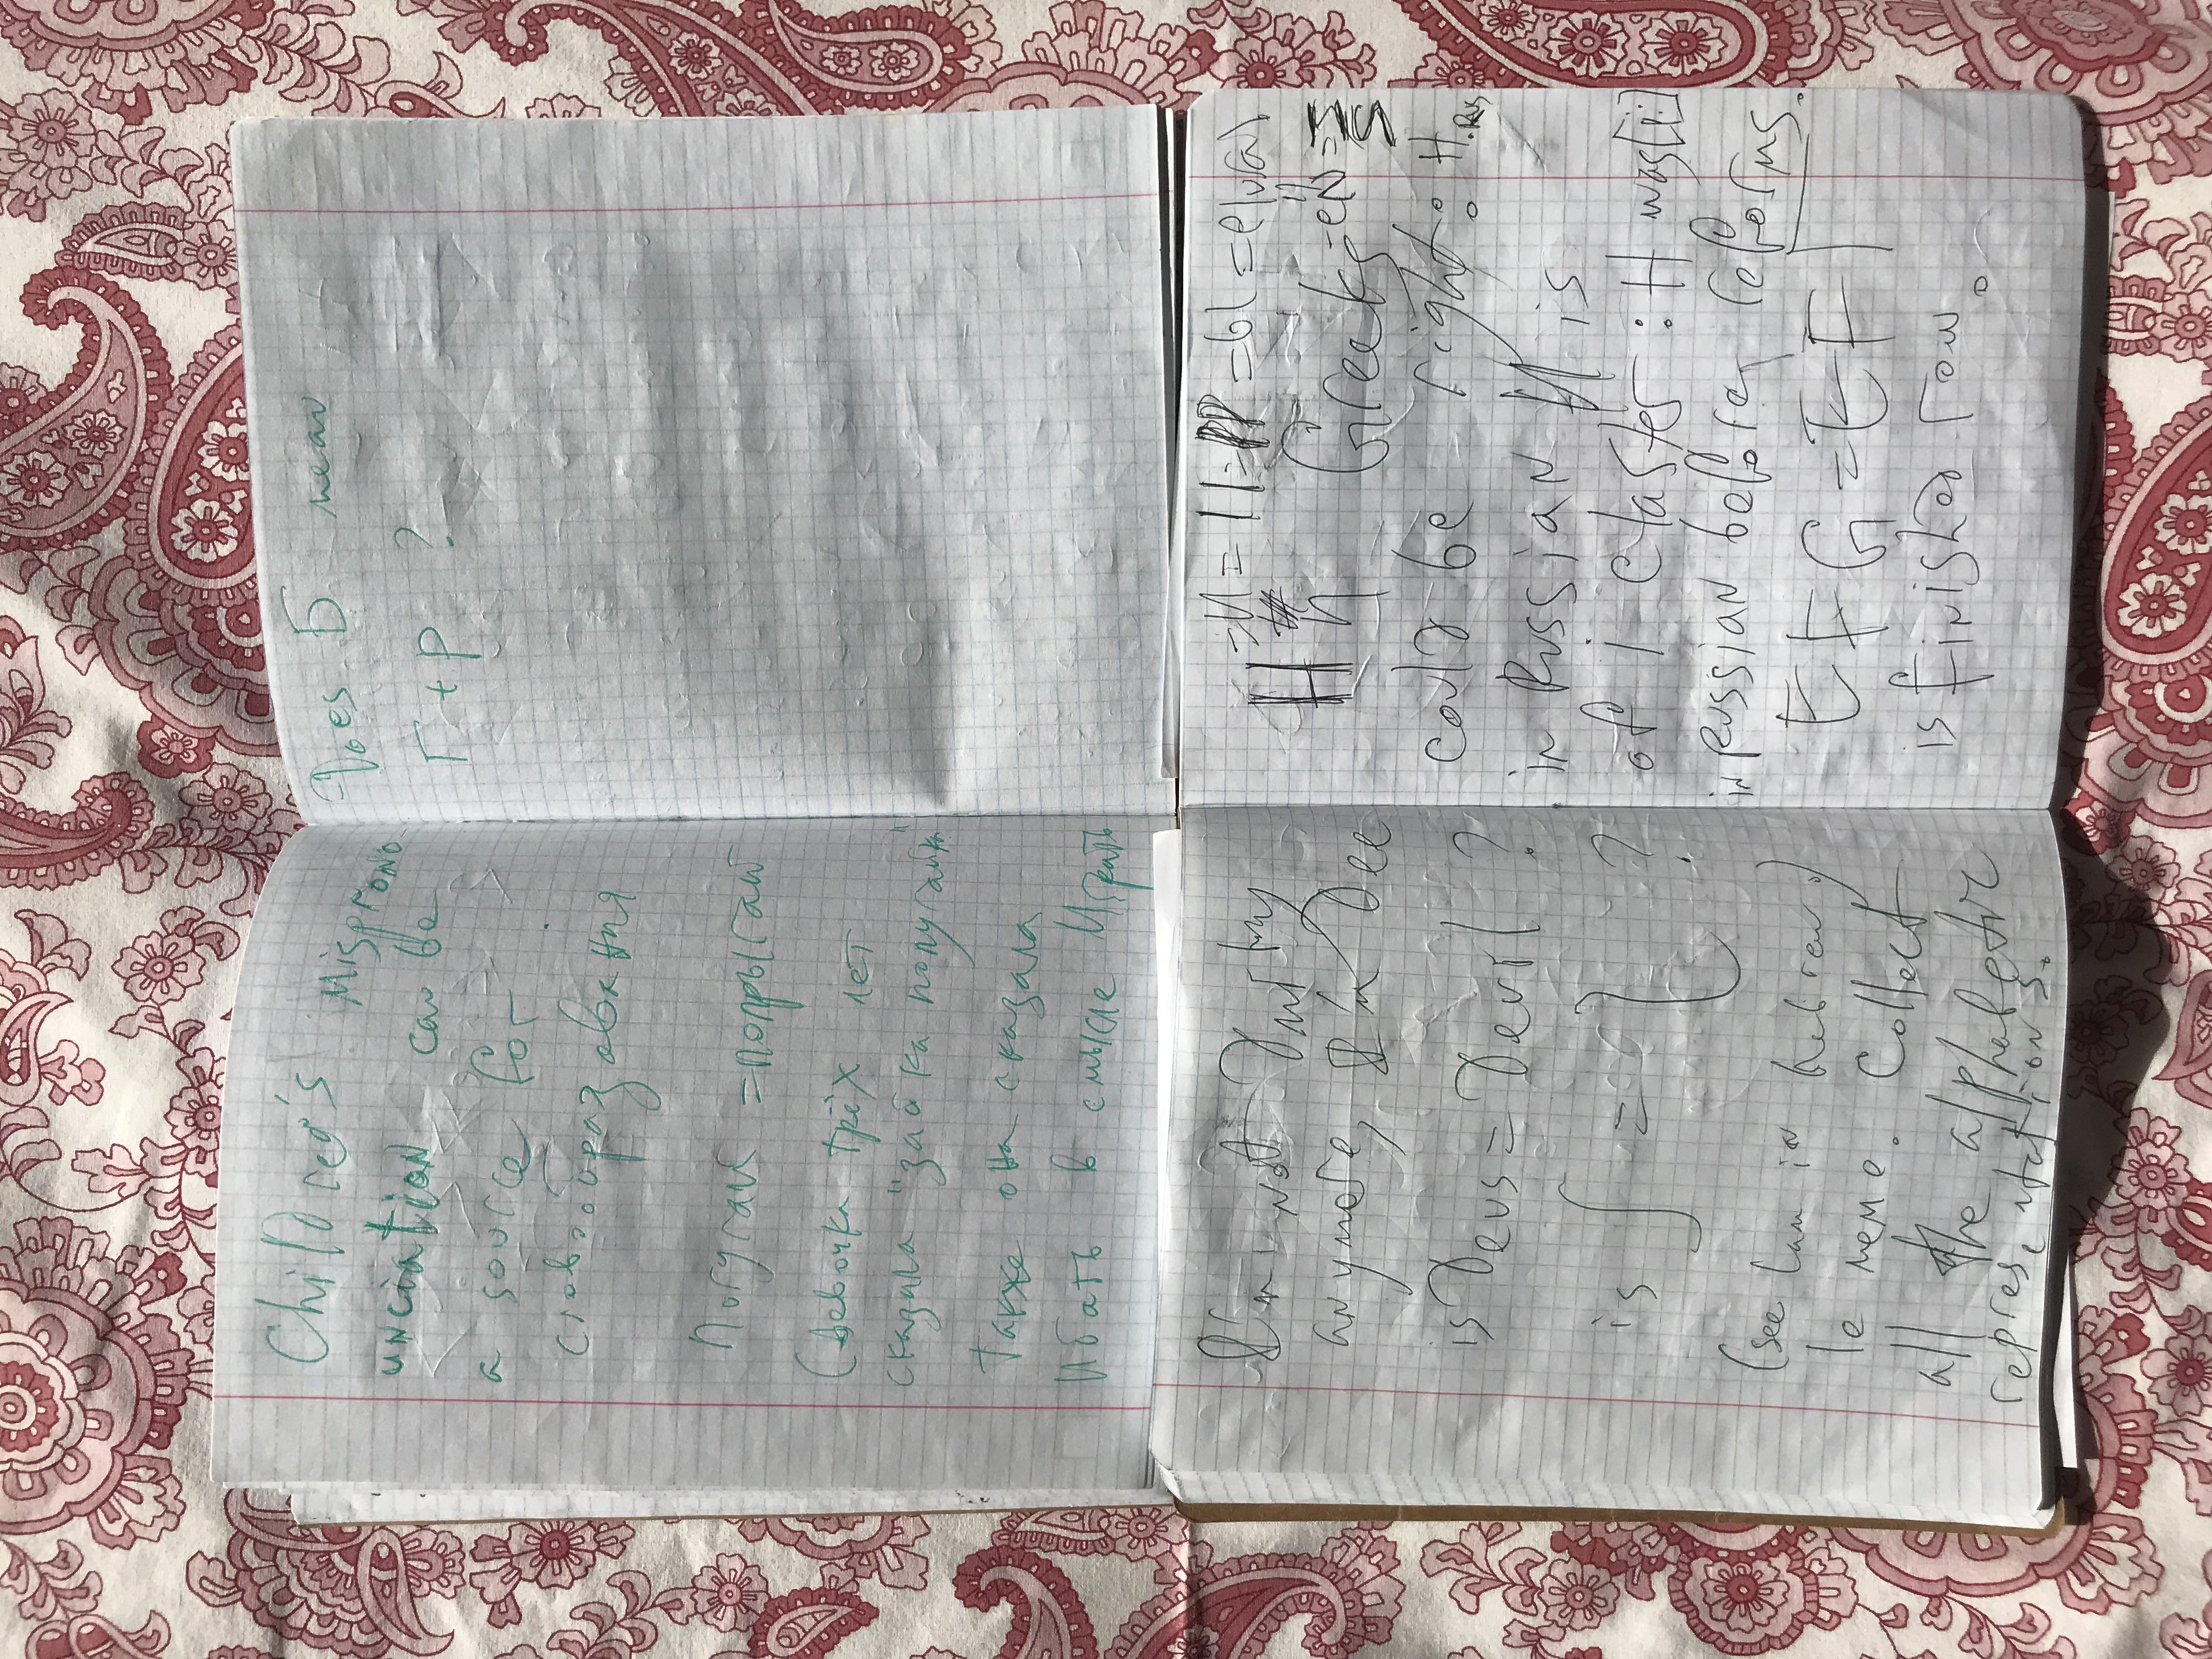 Children's Misprono-
unciation can be
a source for
словообразования
Попугай = попрыгай
(девочка трёх лет
сказала "зайка попугайка"
также она сказала
Ибать в смысле Играть
Does Б mean
Г + Р ?
I'm not Dmitry
anymore, I'm Dee
is Deus = Devil ?
is ∫ = ?
(see lam in hebrew)
le меме. Collect
all the alphabetic
representations.
= И = 11 = = Ы = plural
H η Greeks
could be right: H.Rus
in Russian И is
of i claster: H was [i:]
in Russian before reforms.
E F G = E F Г
is finished row.